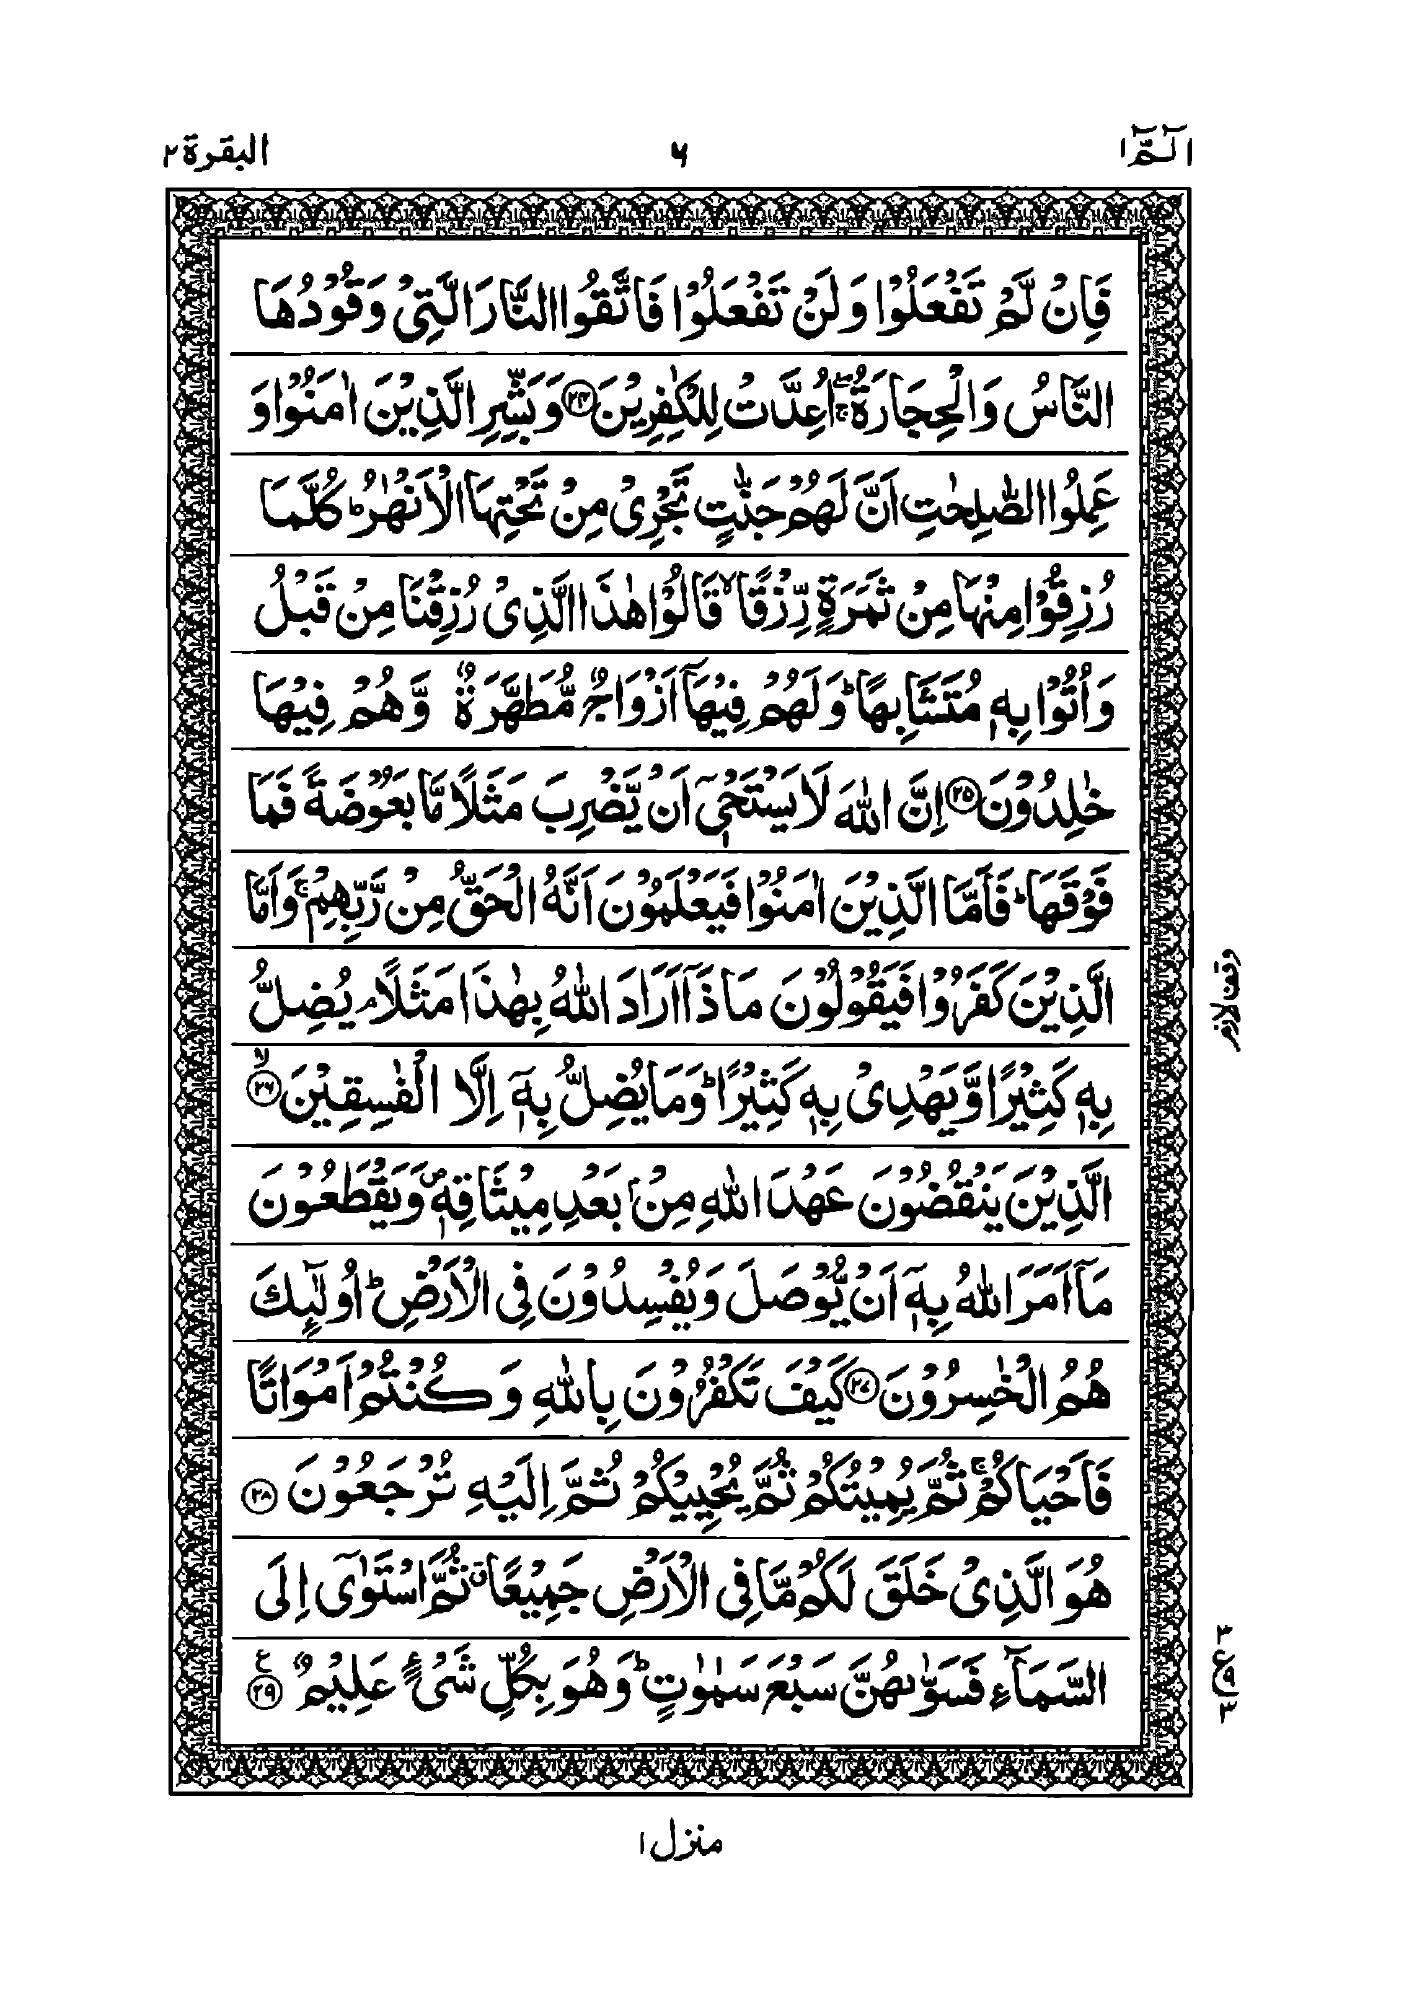 الٓـمّٓ ۱
۶
البقرة ۲
فَاِنْ لَّمْ تَفْعَلُوْا وَلَنْ تَفْعَلُوْا فَاتَّقُوا النَّارَ الَّتِیْ وَقُوْدُهَا
النَّاسُ وَالْحِجَارَةُ ۖۚ اُعِدَّتْ لِلْكٰفِرِیْنَ ﴿۲۴﴾ وَبَشِّرِ الَّذِیْنَ اٰمَنُوْا وَ
عَمِلُوا الصّٰلِحٰتِ اَنَّ لَهُمْ جَنّٰتٍ تَجْرِیْ مِنْ تَحْتِهَا الْاَنْهٰرُ ؕ كُلَّمَا
رُزِقُوْا مِنْهَا مِنْ ثَمَرَةٍ رِّزْقًا ۙ قَالُوْا هٰذَا الَّذِیْ رُزِقْنَا مِنْ قَبْلُ
وَاُتُوْا بِهٖ مُتَشَابِهًا ؕ وَلَهُمْ فِیْهَاۤ اَزْوَاجٌ مُّطَهَّرَةٌ وَّهُمْ فِیْهَا
خٰلِدُوْنَ ﴿۲۵﴾ اِنَّ اللّٰهَ لَا یَسْتَحْیٖۤ اَنْ یَّضْرِبَ مَثَلًا مَّا بَعُوْضَةً فَمَا
فَوْقَهَا ؕ فَاَمَّا الَّذِیْنَ اٰمَنُوْا فَیَعْلَمُوْنَ اَنَّهُ الْحَقُّ مِنْ رَّبِّهِمْ ۚ وَاَمَّا
الَّذِیْنَ كَفَرُوْا فَیَقُوْلُوْنَ مَاذَاۤ اَرَادَ اللّٰهُ بِهٰذَا مَثَلًا ۘ یُضِلُّ
وقف لازم
بِهٖ كَثِیْرًا وَّیَهْدِیْ بِهٖ كَثِیْرًا ؕ وَمَا یُضِلُّ بِهٖۤ اِلَّا الْفٰسِقِیْنَ ۙ﴿۲۶﴾
الَّذِیْنَ یَنْقُضُوْنَ عَهْدَ اللّٰهِ مِنْۢ بَعْدِ مِیْثَاقِهٖ ۪ وَیَقْطَعُوْنَ
مَاۤ اَمَرَ اللّٰهُ بِهٖۤ اَنْ یُّوْصَلَ وَیُفْسِدُوْنَ فِی الْاَرْضِ ؕ اُولٰٓىِٕكَ
هُمُ الْخٰسِرُوْنَ ﴿۲۷﴾ كَیْفَ تَكْفُرُوْنَ بِاللّٰهِ وَكُنْتُمْ اَمْوَاتًا
فَاَحْیَاكُمْ ۚ ثُمَّ یُمِیْتُكُمْ ثُمَّ یُحْیِیْكُمْ ثُمَّ اِلَیْهِ تُرْجَعُوْنَ ﴿۲۸﴾
هُوَ الَّذِیْ خَلَقَ لَكُمْ مَّا فِی الْاَرْضِ جَمِیْعًا ۗ ثُمَّ اسْتَوٰۤی اِلَی
السَّمَآءِ فَسَوّٰىهُنَّ سَبْعَ سَمٰوٰتٍ ؕ وَهُوَ بِكُلِّ شَیْءٍ عَلِیْمٌ ﴿۲۹﴾ ع
۳
ع ۹
۳
منزل ۱